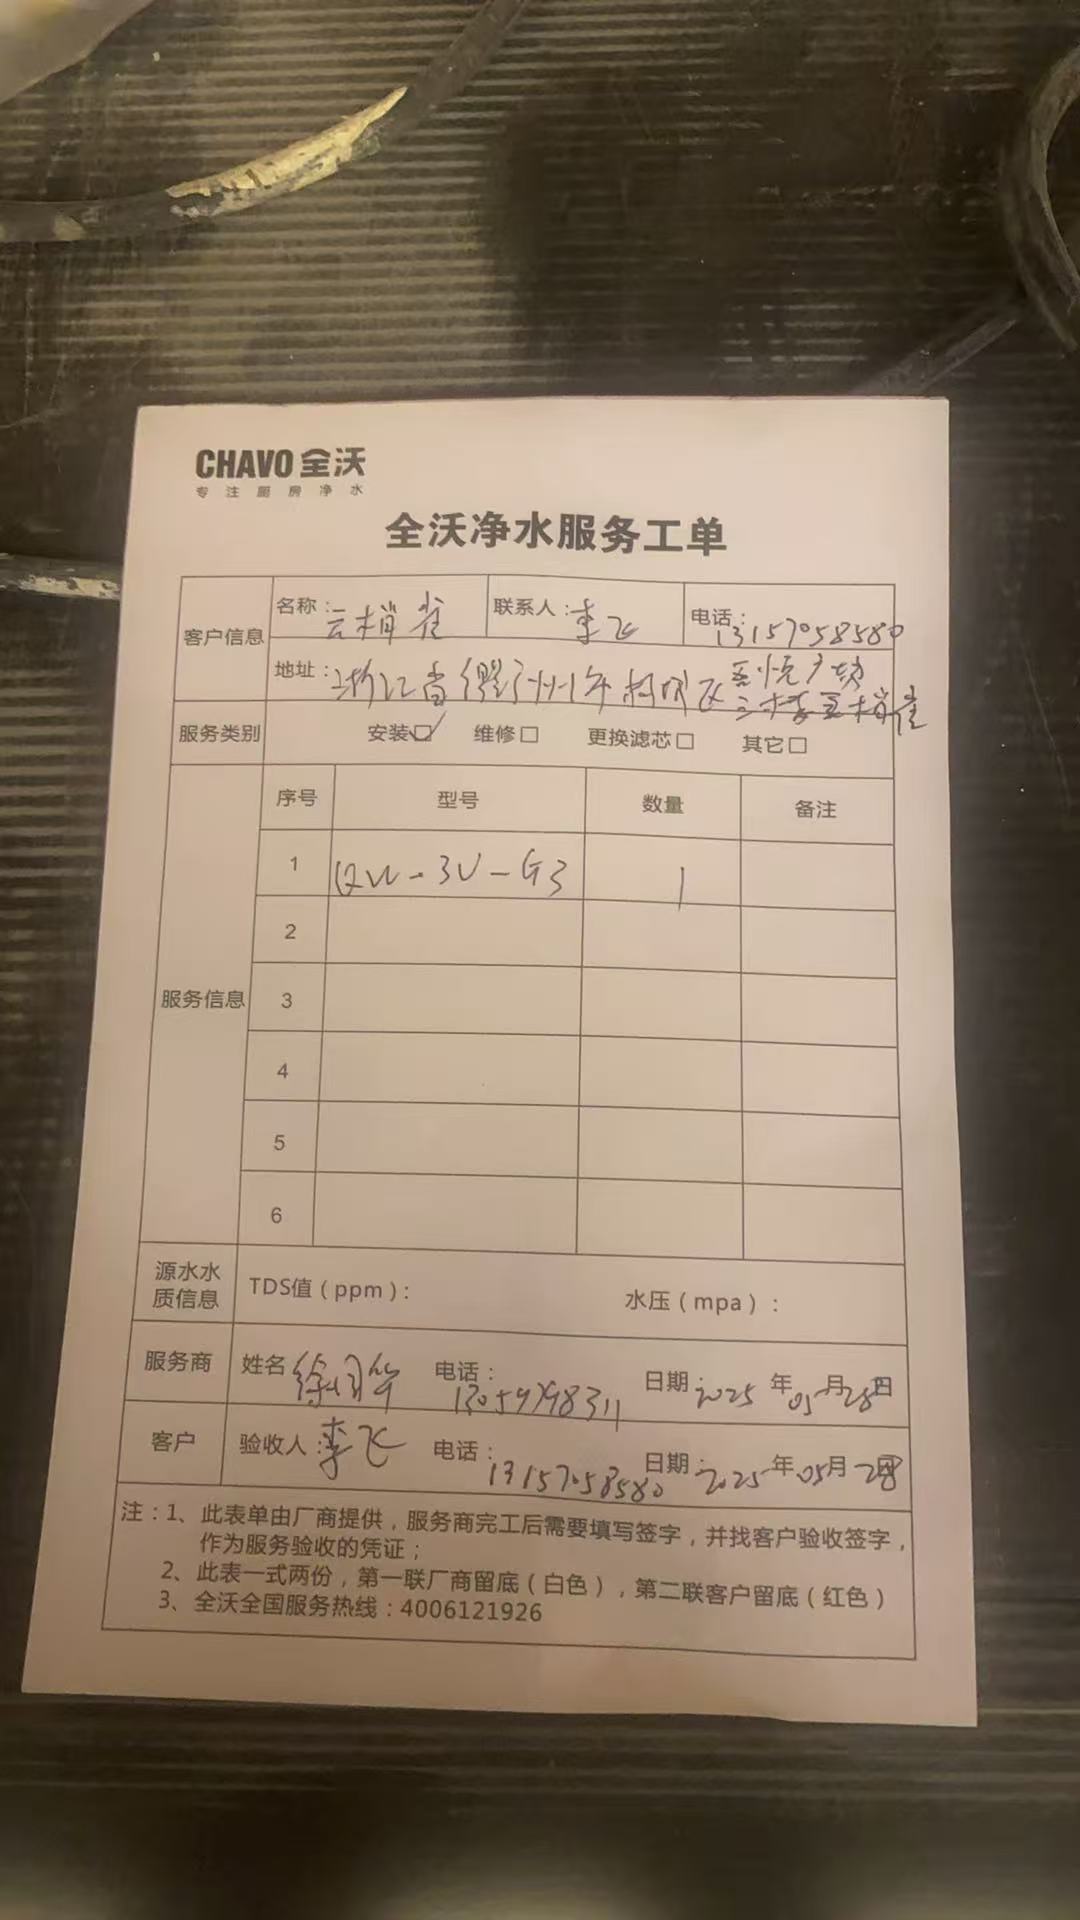 CHAVO 全沃
专注厨房净水
全沃净水服务工单
客户信息 名称：云梢雀 联系人：李飞 电话：13157058580
地址：浙江省衢州市柯城区吾悦广场
三楼云梢雀
服务类别 安装☑ 维修□ 更换滤芯□ 其它□
服务信息 序号 型号 数量 备注
1 QW-3U-G3 1
2
3
4
5
6
源水水质信息 TDS值（ppm）： 水压（mpa）：
服务商 姓名 徐 电话： 日期：2025年05月28日
客户 验收人：李飞 电话：13157058580 日期：2025年05月28日
注：1、此表单由厂商提供，服务商完工后需要填写签字，并找客户验收签字，
作为服务验收的凭证；
2、此表一式两份，第一联厂商留底（白色），第二联客户留底（红色）
3、全沃全国服务热线：4006121926